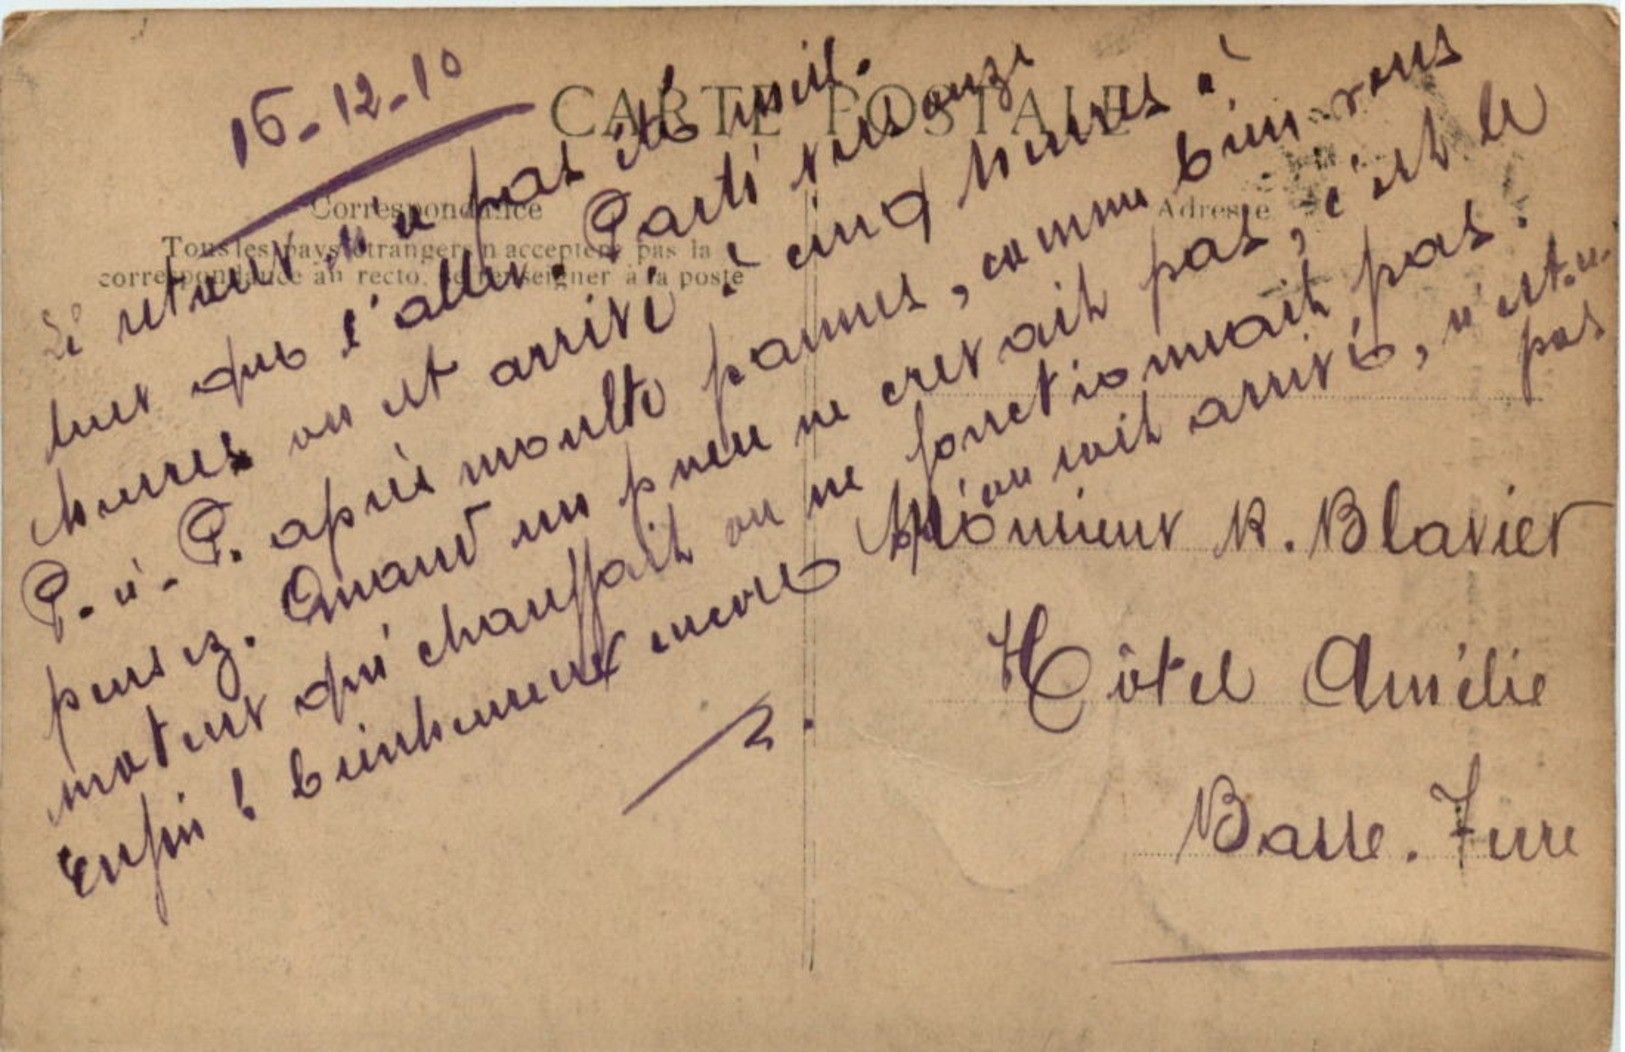 16-12-10
CARTE POSTALE
Correspondance
Tous les pays étrangers n'acceptent pas la
correspondance au recto, se renseigner à la poste
Adresse
Le retour n'a pas été meil-
leur que l'aller. Parti vers onze
heures on est arrivé à cinq heures à
P.-à-P. après moults pannes, comme bien vous
pensez. Quand un pneu ne crevait pas, c'est le
moteur qui chauffait ou ne fonctionnait pas.
Enfin ! bienheureux encore qu'on soit arrivé, n'est-ce
pas
Monsieur R. Blavier
Hôtel Amélie
Basse-Terre